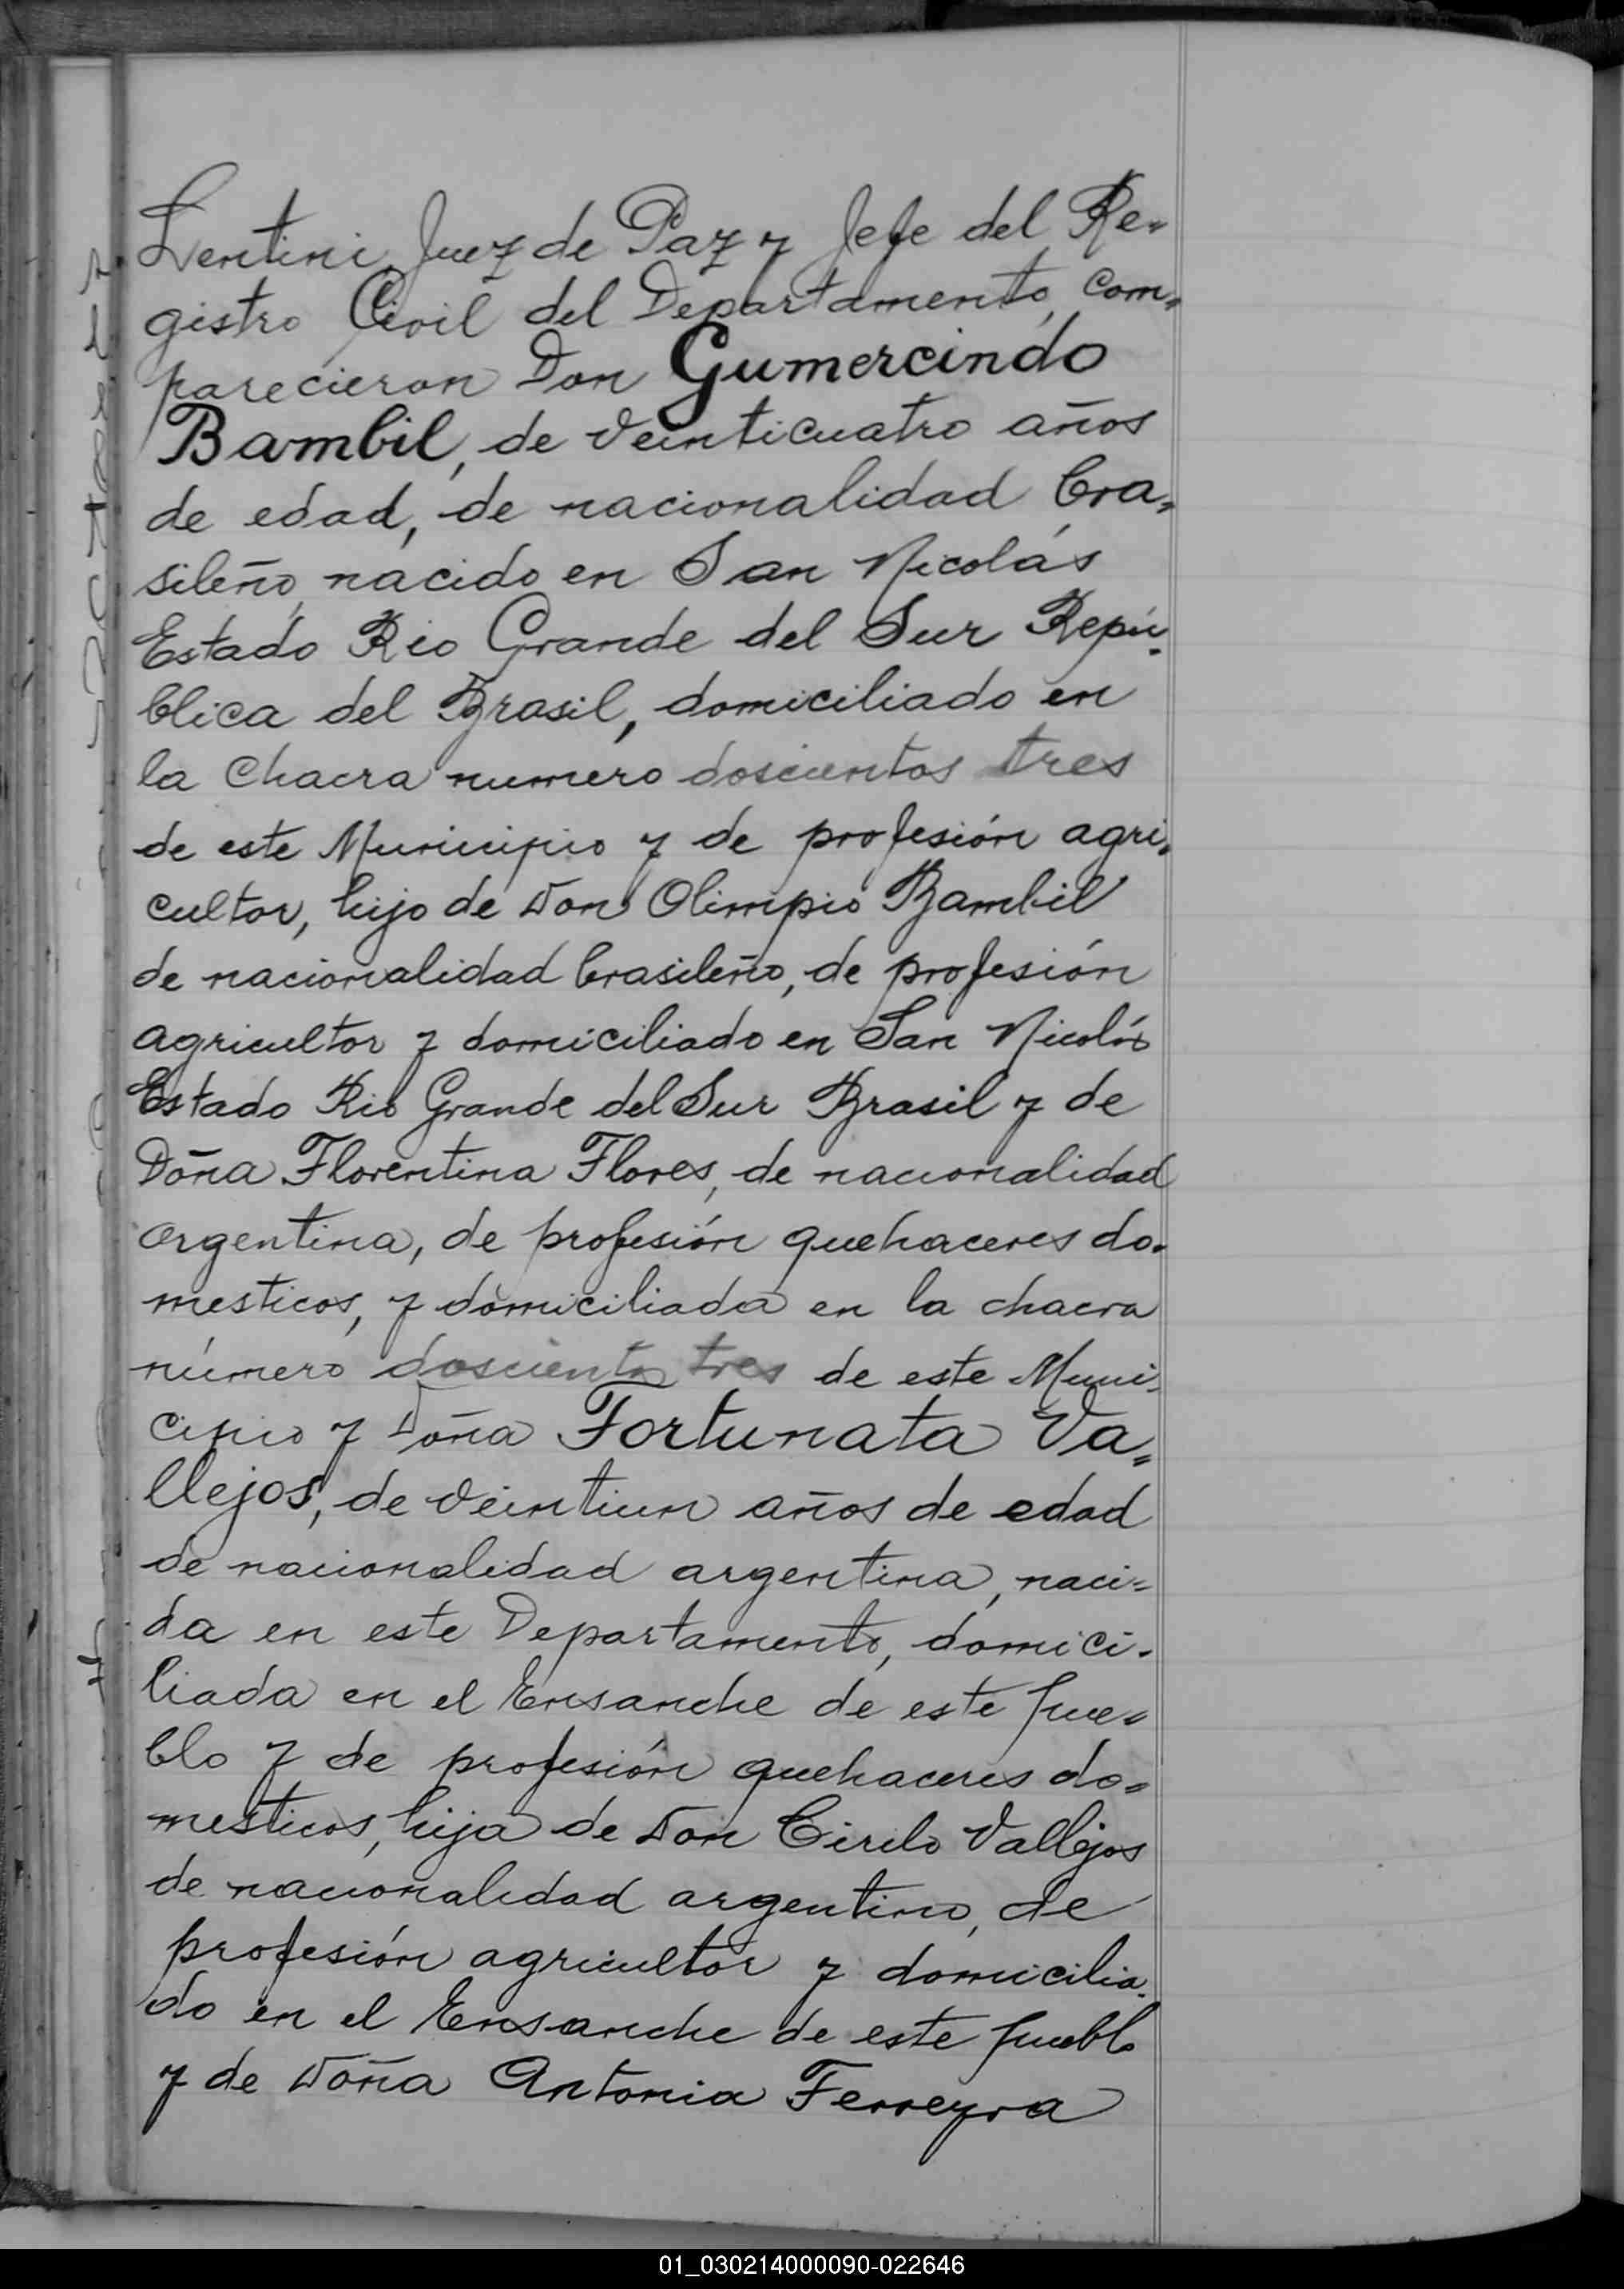 Lentini, Juez de Paz y Jefe del Re„
gistro Civil del Departamento, com„
parecieron Don Gumercindo
Bambil, de veinticuatro años
de edad, de nacionalidad bra„
sileño, nacido en San Nicolás
Estado Rio Grande del Sur Repú„
blica del Brasil, domiciliado en
la Chacra numero doscientos tres
de este Municipio y de profesión agri„
cultor, hijo de Don Olimpio Bambil
de nacionalidad brasileño, de profesión
agricultor y domiciliado en San Nicolás
Estado Rio Grande del Sur Brasil y de
Doña Florentina Flores, de nacionalidad
argentina, de profesión quehaceres do-
mesticos, y domiciliada en la chacra
número doscientos tres de este Muni-
cipio y Doña Fortunata Va„
llejos, de veintiun años de edad
de nacionalidad argentina, naci=
da en este Departamento, domici-
liada en el Ensanche de este pue„
blo y de profesión quehaceres do„
mesticos, hija de Don Cirilo Vallejos
de nacionalidad argentino, de
profesión agricultor y domicilia„
do en el Ensanche de este pueblo
y de Doña Antonia Ferreyra
01_030214000090-022646